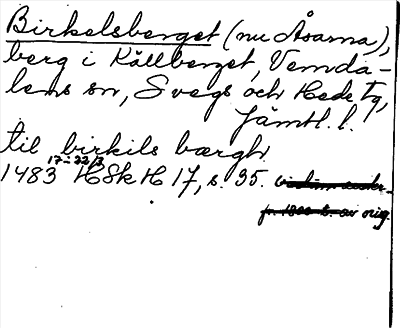 Birkelsberget (nu Åsarna),
berg i Källberget, Vemda-
lens sn, Svegs och Hede tg,
Jämtl. l.
til birkils bærgh
17-22/3
1483 HSH 17, s. 35.
av orig.